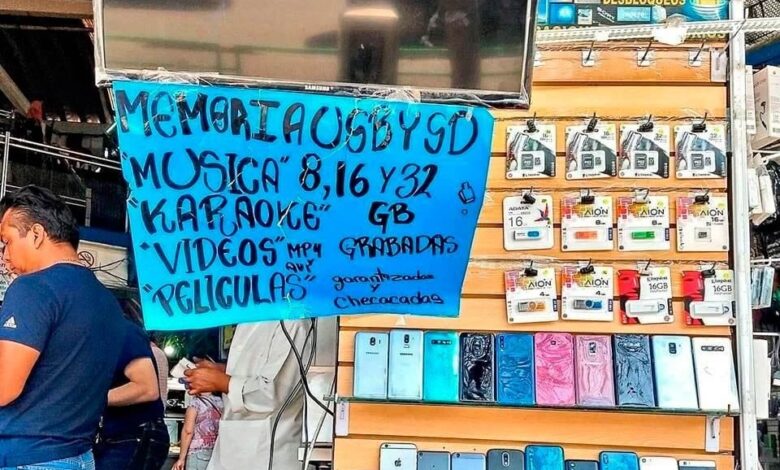 DESBLOQUEOS
SAMSUNG
MEMORIA USB Y SD
"MUSICA" 8,16 Y 32
"KARAOKE" GB
"VIDEOS" MP4 GRABADAS
AVI
"PELICULAS" garantizadas
y
checacadas
ADATA
16
16GB
16GB
SAMSUNG
SAMSUNG